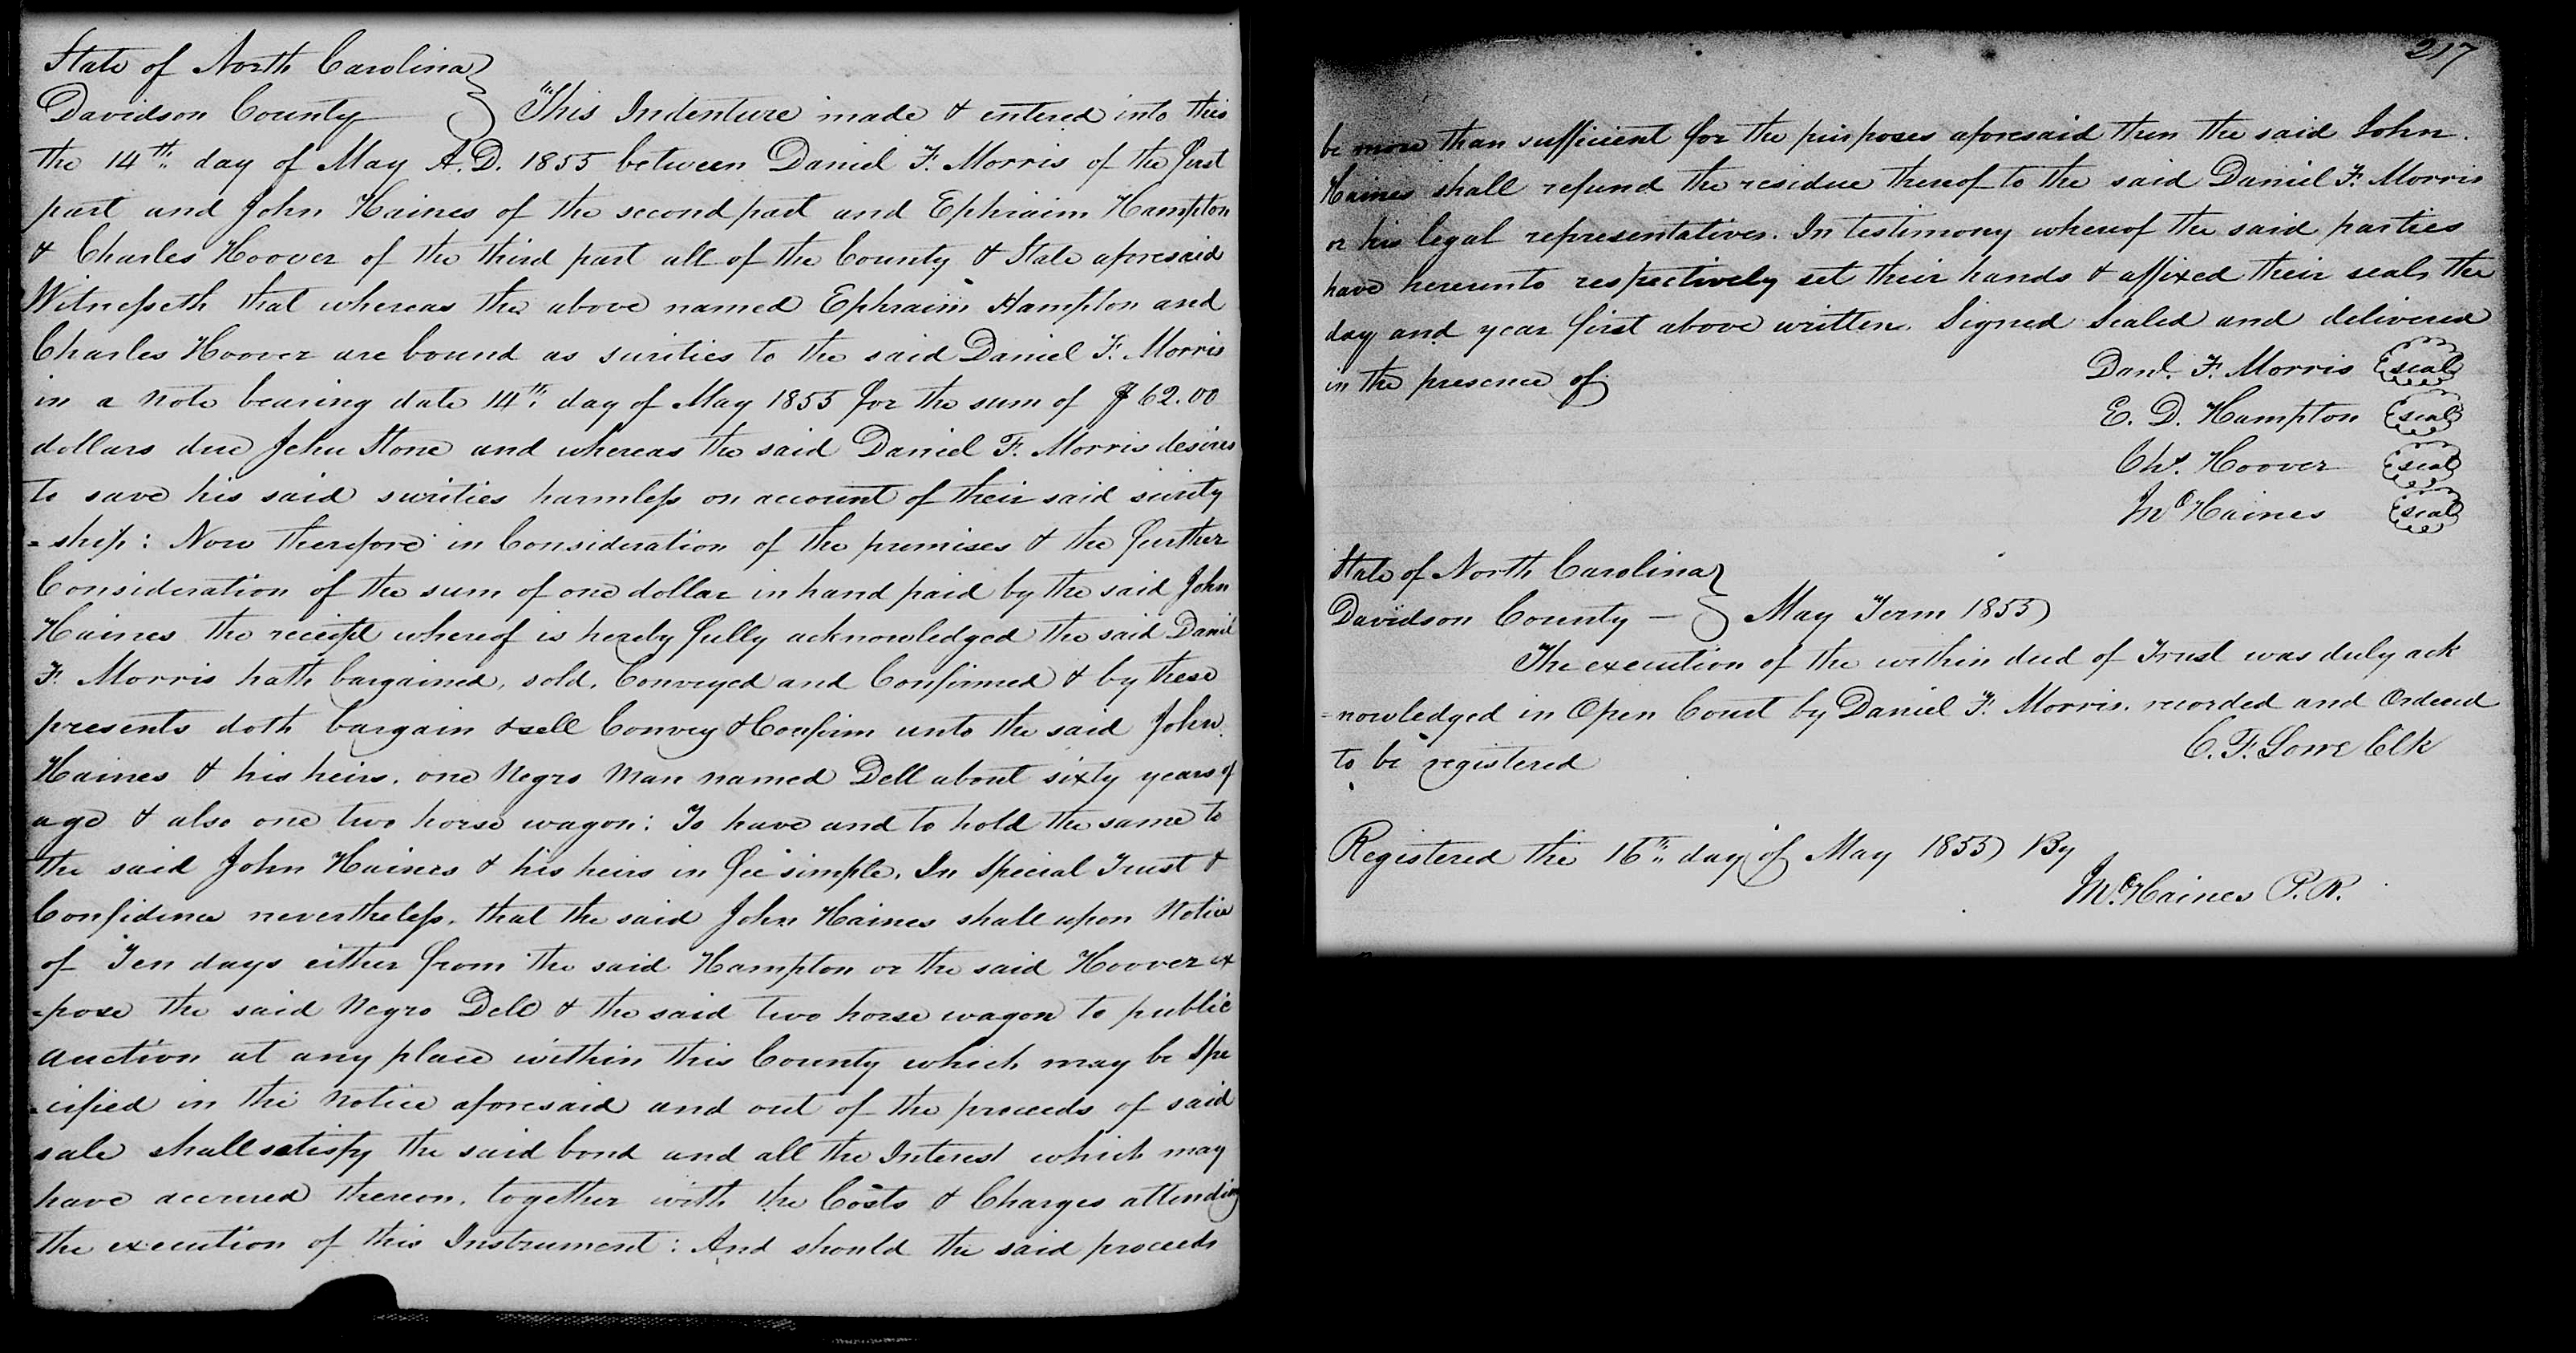 State of North Carolina }
Davidson County } This Indenture made & entered into this
the 14th day of May A.D. 1855 between Daniel F. Morris of the first
part and John Haines of the second part and Ephraim Hampton
& Charles Hoover of the third part all of the County & State aforesaid
Witnesseth that whereas the above named Ephraim Hampton and
Charles Hoover are bound as surities to the said Daniel F. Morris
in a note bearing date 14th day of May 1855 for the sum of $62.00
dollars due Jehu Stone and whereas the said Daniel F. Morris desires
to save his said surities harmless on account of their said surity
=ship: Now therefore in Consideration of the premises & the further
Consideration of the sum of one dollar in hand paid by the said John
Haines the receipt whereof is hereby fully acknowledged the said Daniel
F. Morris hath bargained, sold, Conveyed and Confirmed & by these
presents doth bargain & sell Convey & Confirm unto the said John
Haines & his heirs, one Negro Man named Dell about sixty years of
age & also one two horse wagon: To have and to hold the same to
the said John Haines & his heirs in fee simple. In Special Trust &
Confidence nevertheless, that the said John Haines shall upon Notice
of Ten days either from the said Hampton or the said Hoover ex
=pose the said Negro Dell & the said two horse wagon to public
auction at any place within this County which may be Spe
=cified in the notice aforesaid and out of the proceeds of said
sale shall satisfy the said bond and all the Interest which may
have accrued thereon, together with the Costs & Charges attending
the execution of this Instrument: And should the said proceeds
217
be more than sufficient for the purposes aforesaid then the said John
Haines shall refund the residue thereof to the said Daniel F. Morris
or his legal representatives. In testimony whereof the said parties
have hereunto respectively set their hands & affixed their seals the
day and year first above written. Signed Sealed and delivered
in the presence of
Danl. F. Morris (seal)
E. D. Hampton (seal)
Chs. Hoover (seal)
Jno Haines (seal)
State of North Carolina }
Davidson County — } May Term 1855
The execution of the within deed of Trust was duly ack
=nowledged in Open Court by Daniel F. Morris. recorded and Ordered
to be registered
C. F. Lowe Clk
Registered the 16th day of May 1855 By
Jno. Haines P. R.